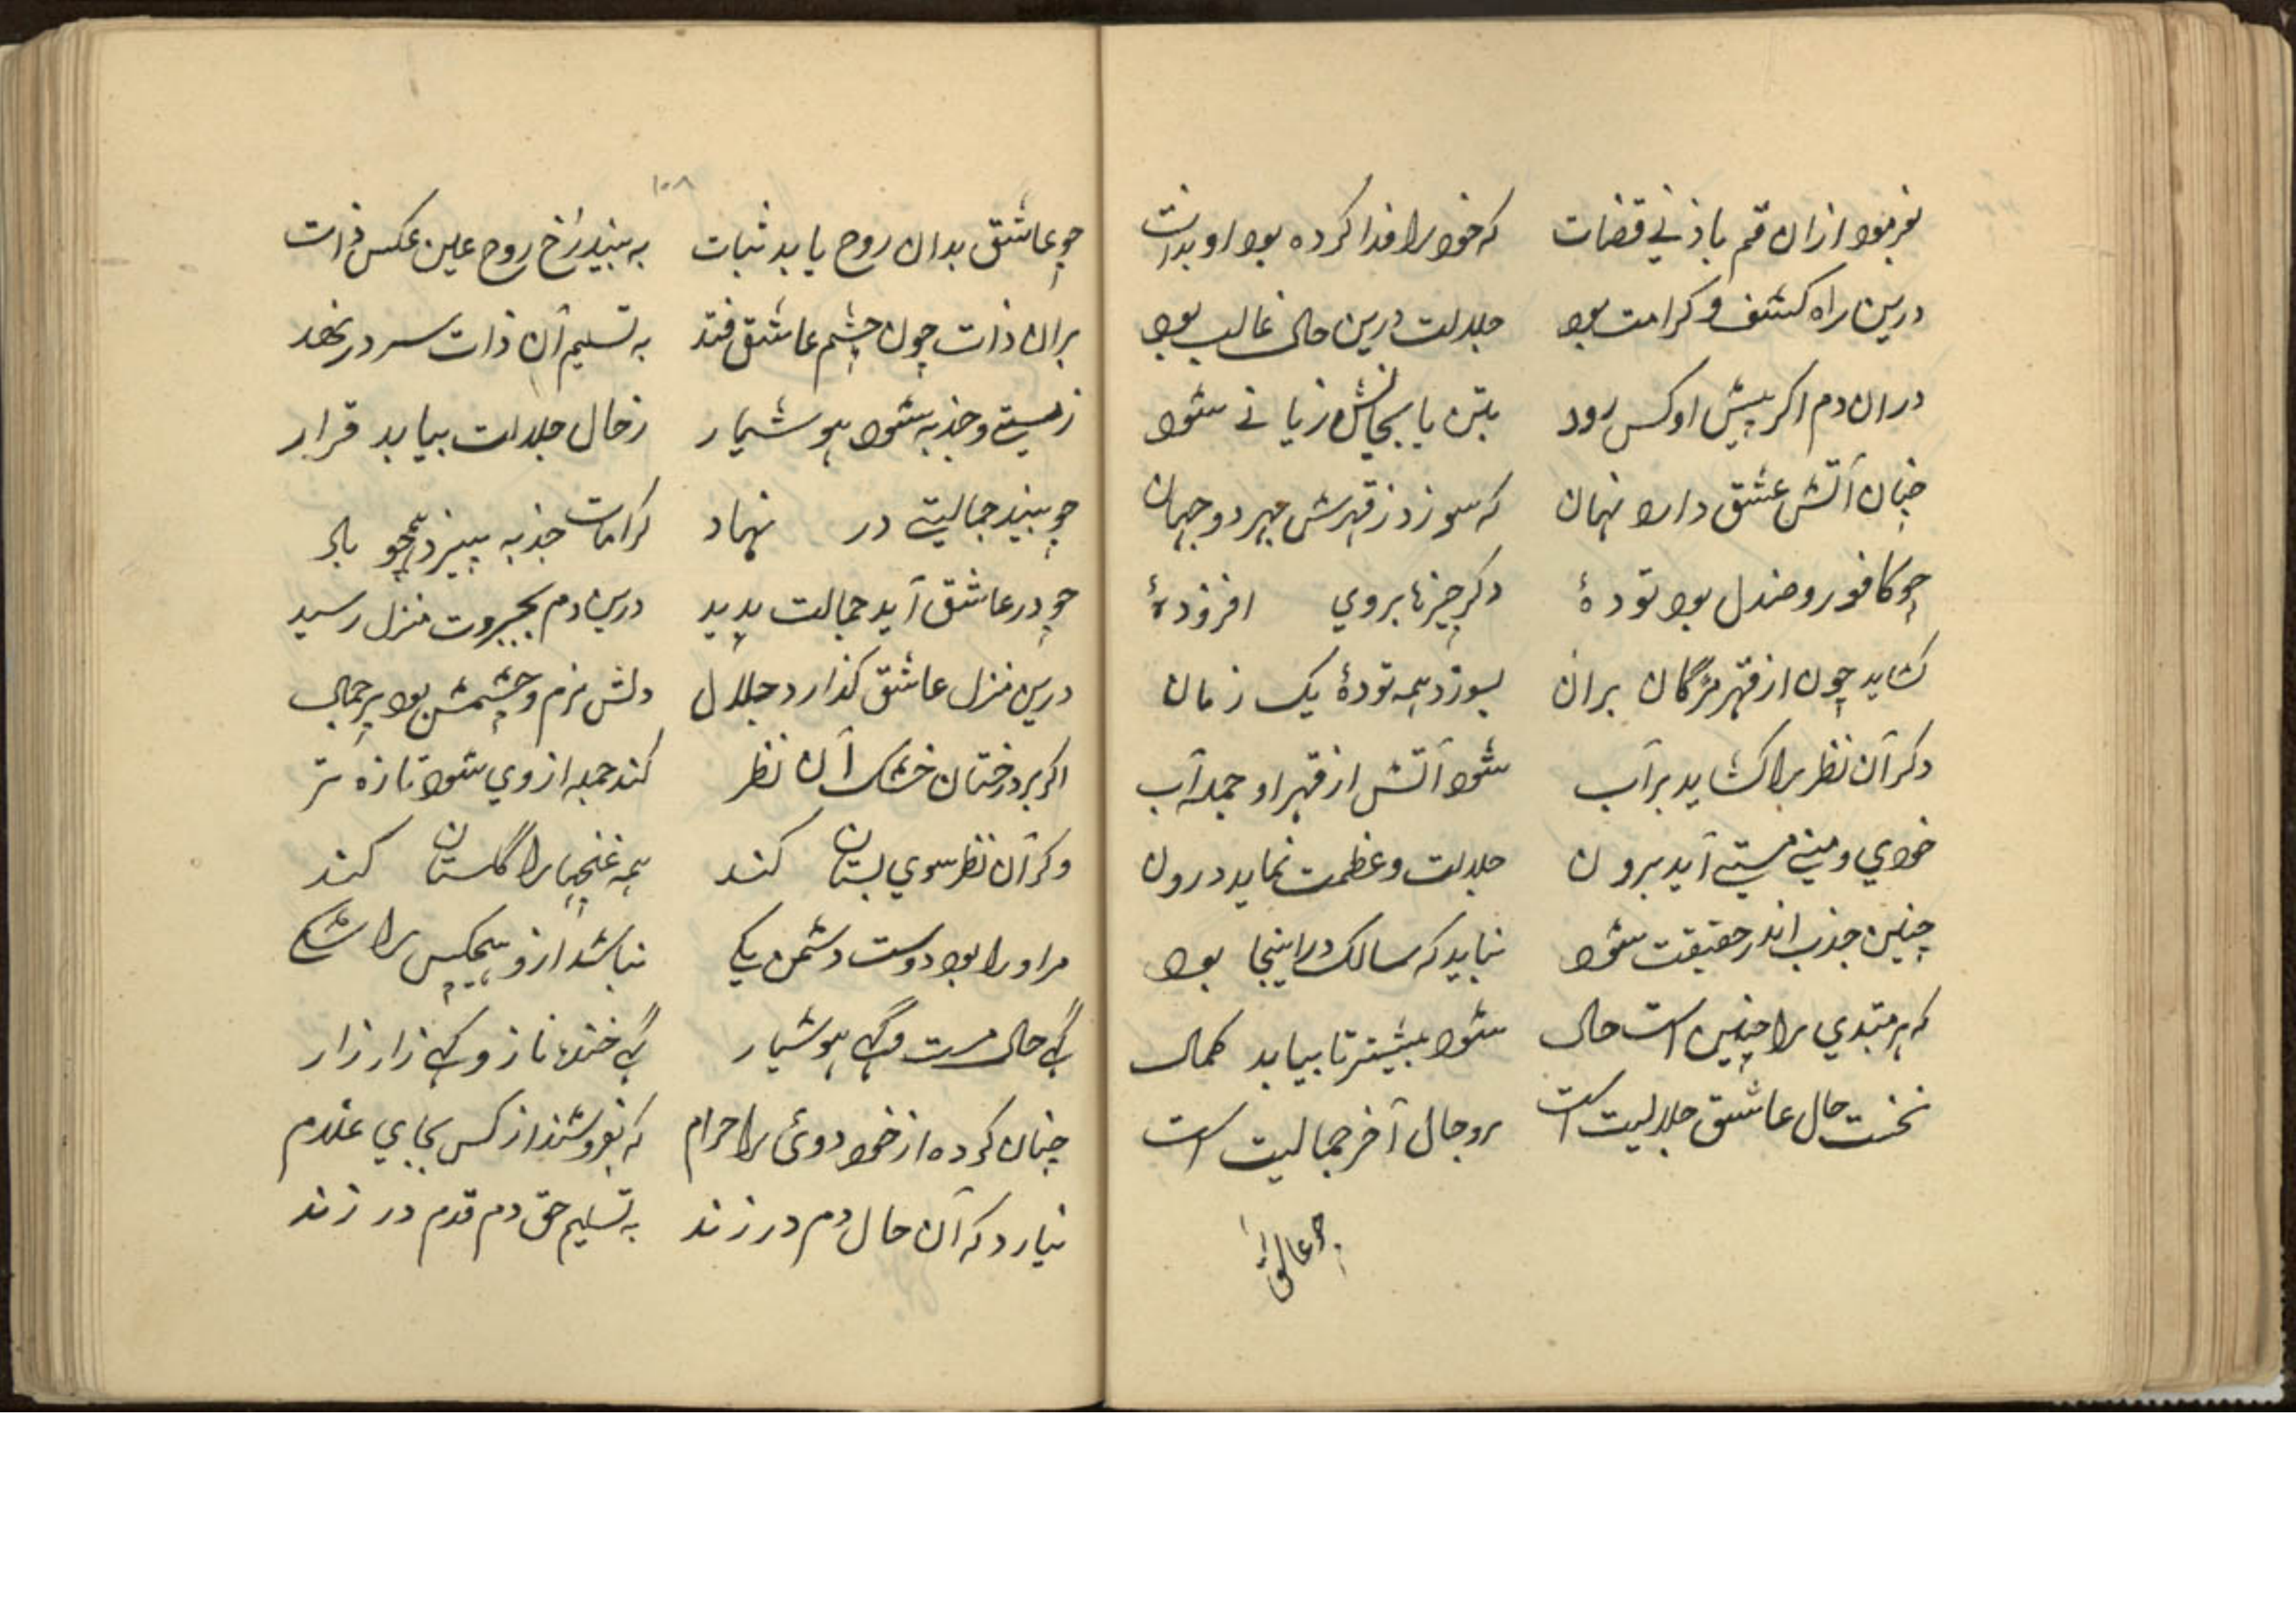 بفرمود ازان قم باذنی قضات که خود را فدا کرده بود او بذات
درین راه کشف و کرامت بود جلالت درین حال غالب بود
دران دم اگر پیش او کس رود بتن یا بجانش زیانی شود
چنان آتش عشق دارد نهان که سوزد ز قهرش مهر دو جهان
چو کافور و صندل بود تودۀ دگر چیزها بروی افزودۀ
کشاید چون از قهر مژگان بران بسوزد همه تودۀ یک زمان
دگر آن نظر را کشاید بر آب شود آتش از قهر او جمله آب
خودی و منی مستی آید برون جلالت و عظمت نماید درون
چنین جذب اندر حقیقت شود نباید که سالک در اینجا بود
که هر مبتدی را چنین است حال شود بیشتر تا بیابد کمال
نخست حال عاشق جلالیت است برو حال آخر جمالیت است
چو عاشق
۱۰۸
چو عاشق بدان روح یابد ثبات به بیند رخ روح عین عکس ذات
بران ذات چون چشم عاشق فتد به تسلیم آن ذات سر در نهد
ز مستی و جذبه شود هوشیار ز حال جلالت بیابد قرار
چو بیند جمالیتی در نهاد کرامات جذبه ببیزد همچو باد
چو در عاشق آید جمالت پدید درین دم بجبروت منزل رسید
درین منزل عاشق گذارد جلال دلش نرم و چشمش بود پر جمال
اگر بر درختان خشک آن نظر کند جمله از وی شود تازه تر
وگر آن نظر سوی بستان کند همه غنچها را گلستان کند
مر او را بود دوست دشمن یکی نباشد ازو هیچکس را شکی
گهی حال مست و گهی هوشیار گهی خندۀ ناز و گهی زار زار
چنان کرده از خود دوئی را حرام که بفروشند از کس بجای غلام
نیارد که آن حال دم در زند به تسلیم حق دم قدم در زند